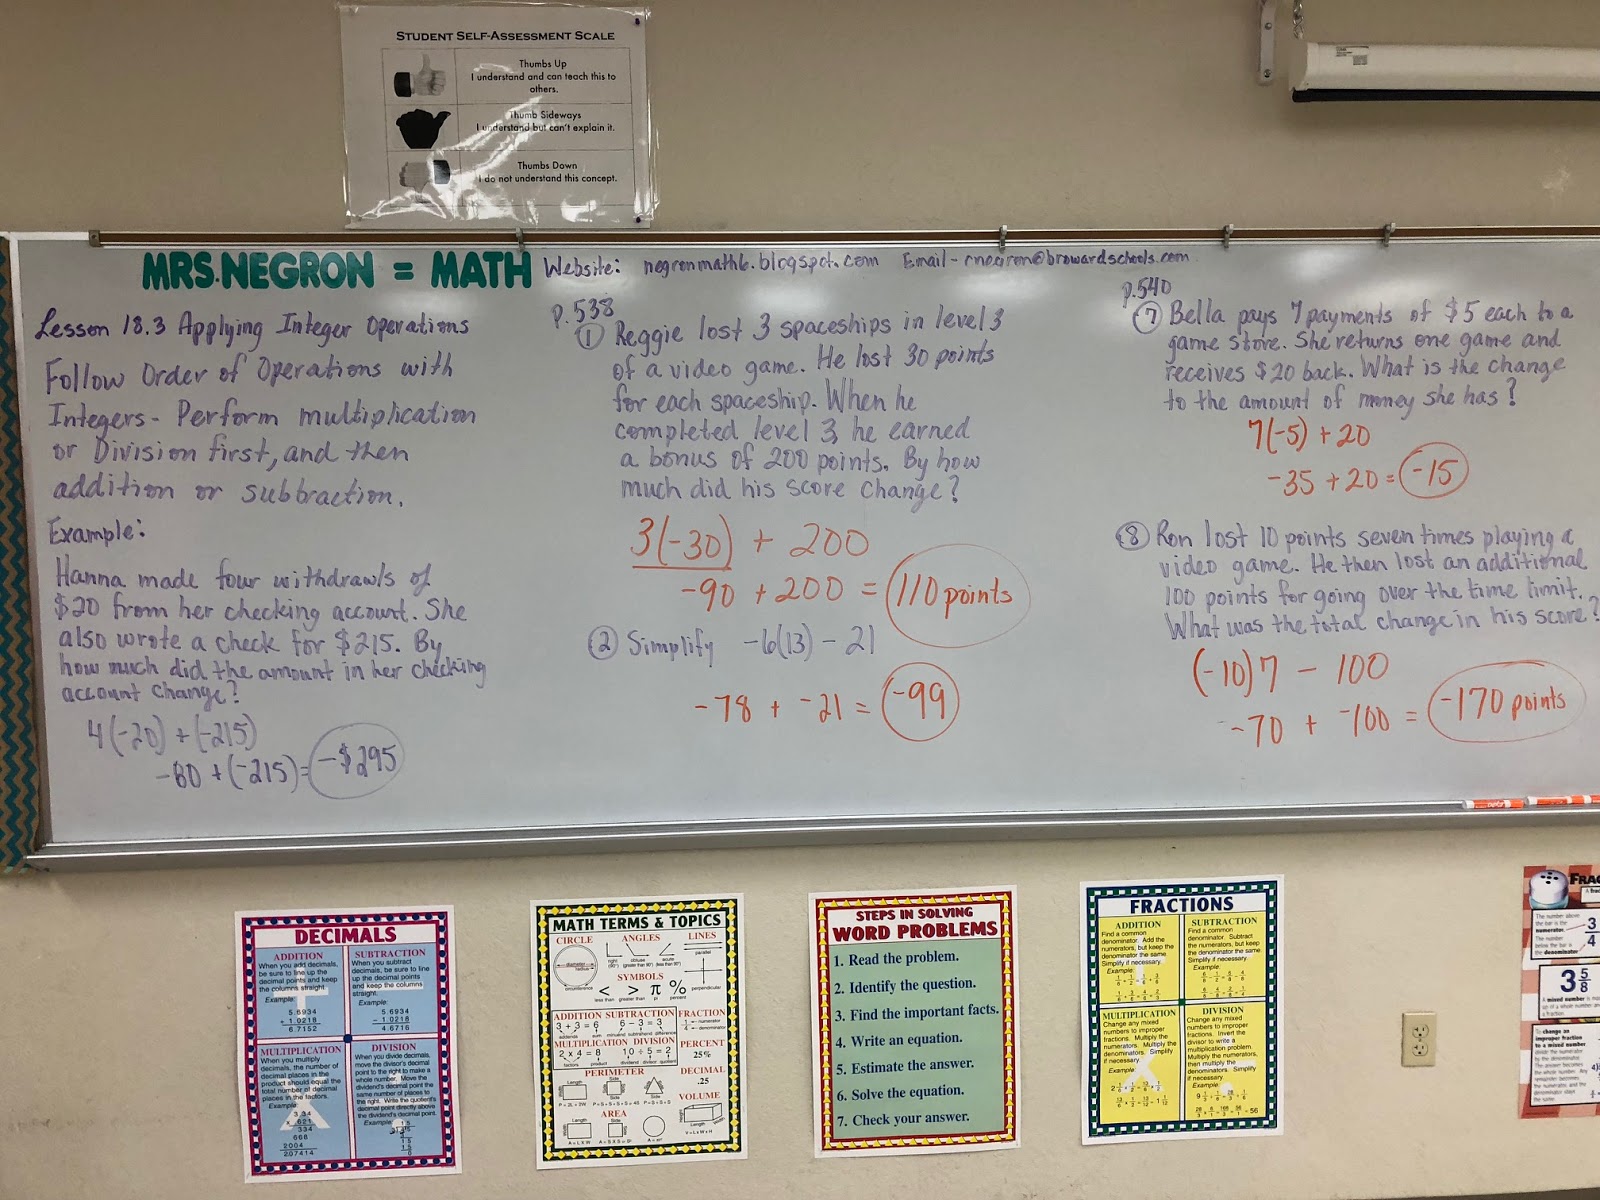 STUDENT SELF-ASSESSMENT SCALE
Thumbs Up
I understand and can teach this to
others.
Thumb Sideways
I understand but can't explain it.
Thumbs Down
I do not understand this concept.
MRS. NEGRON = MATH
Website: negronmath6.blogspot.com Email - rnegron@browardschools.com
Lesson 18.3 Applying Integer Operations
Follow Order of Operations with
Integers - Perform multiplication
or Division first, and then
addition or subtraction.
Example:
Hanna made four withdrawls of
$20 from her checking account. She
also wrote a check for $215. By
how much did the amount in her checking
account change?
4(-20) + (-215)
-80 + (-215) = -$295
p.538
① Reggie lost 3 spaceships in level 3
of a video game. He lost 30 points
for each spaceship. When he
completed level 3, he earned
a bonus of 200 points. By how
much did his score change?
3(-30) + 200
-90 + 200 = 110 points
② Simplify -6(13) - 21
-78 + -21 = -99
p.540
⑦ Bella pays 7 payments of $5 each to a
game store. She returns one game and
receives $20 back. What is the change
to the amount of money she has?
7(-5) + 20
-35 + 20 = -15
⑧ Ron lost 10 points seven times playing a
video game. He then lost an additional
100 points for going over the time limit.
What was the total change in his score?
(-10)7 - 100
-70 + -100 = -170 points
DECIMALS
ADDITION
When you add decimals,
be sure to line up
the decimal points and keep
the columns straight.
Example:
5.6934
+ 1.0218
6.7152
SUBTRACTION
When you subtract
decimals, be sure to line
up the decimal points
and keep the columns
straight.
Example:
5.6934
- 1.0218
4.6716
MULTIPLICATION
When you multiply
decimals, the number of
decimal places in the
product should equal the
total number of decimal
places in the factors.
Example:
3.34
x .621
334
668
2004
2.07414
DIVISION
When you divide decimals,
move the divisor's decimal
point to the right to make a
whole number. Move the
dividend's decimal point the
same number of places to
the right. Write the quotient's
decimal point directly above
the dividend's decimal point.
Example:
MATH TERMS & TOPICS
CIRCLE
diameter
radius
circumference
ANGLES
right
obtuse
acute
LINES
parallel
perpendicular
SYMBOLS
< > π %
less than greater than pi percent
ADDITION
3 + 3 = 6
addends sum
SUBTRACTION
6 - 3 = 3
minuend subtrahend difference
FRACTION
numerator
denominator
MULTIPLICATION
2 x 4 = 8
factors product
DIVISION
10 ÷ 5 = 2
dividend divisor quotient
PERCENT
25%
PERIMETER
DECIMAL
.25
AREA
VOLUME
STEPS IN SOLVING
WORD PROBLEMS
1. Read the problem.
2. Identify the question.
3. Find the important facts.
4. Write an equation.
5. Estimate the answer.
6. Solve the equation.
7. Check your answer.
FRACTIONS
ADDITION
Find a common
denominator. Add the
numerators, but keep the
denominator the same.
Simplify if necessary.
Example:
SUBTRACTION
Find a common
denominator. Subtract
the numerators, but keep
the denominator the same.
Simplify if necessary.
Example:
MULTIPLICATION
Change any mixed
numbers to improper
fractions. Multiply the
numerators. Multiply the
denominators. Simplify
if necessary.
Example:
DIVISION
Change any mixed
numbers to improper
fractions. Invert the
divisor to write a
multiplication problem.
Multiply the numerators,
then multiply the
denominators. Simplify
if necessary.
Example:
FRAC
The number above
the bar is the
numerator.
The number
below the bar is
the denominator
3/4
3 5/8
A mixed number is
To change an
improper fraction
to a mixed number